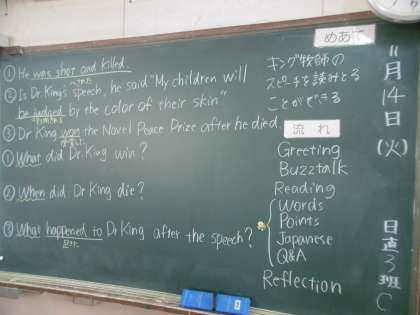 ① He was shot and killed.
② In Dr King's speech, he said "My children will
be judged by the color of their skin"
③ Dr King won the Novel Peace Prize after he died.
① What did Dr. King win?
② When did Dr King die?
③ What happened to Dr King after the speech?
めあて
キング牧師の
スピーチを読みとる
ことができる
流れ
Greeting
Buzztalk
Reading
Words
Points
Japanese
Q&A
Reflection
11月14日(火)
日直3班C